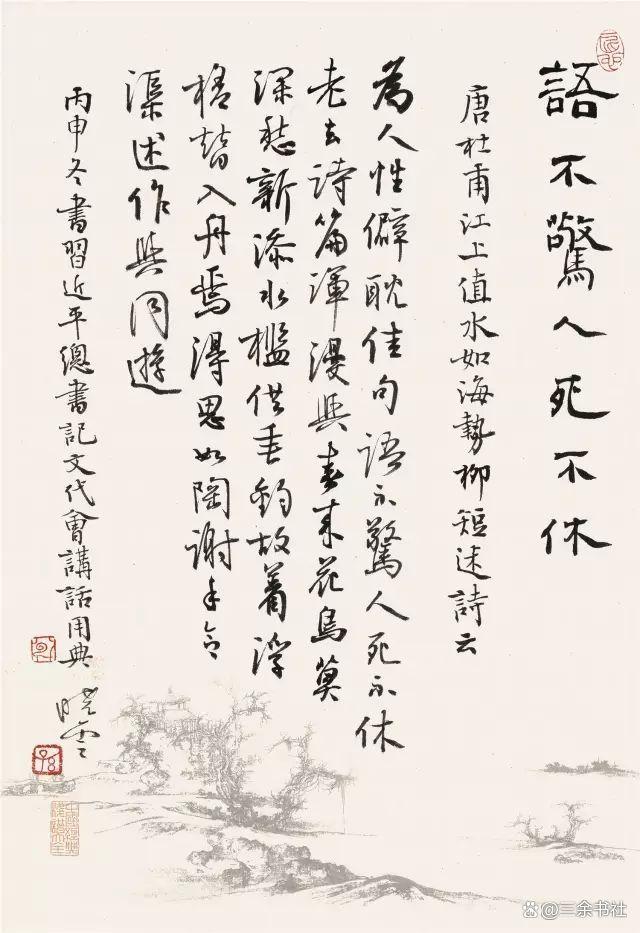 語不驚人死不休
唐杜甫江上值水如海勢聊短述詩云
為人性僻耽佳句語不驚人死不休
老去詩篇渾漫與春來花鳥莫
深愁新添水檻供垂釣故著浮
槎替入舟焉得思如陶謝手令
渠述作與同遊
丙申冬書習近平總書記文代會講話用典
曉雲
@三余书社